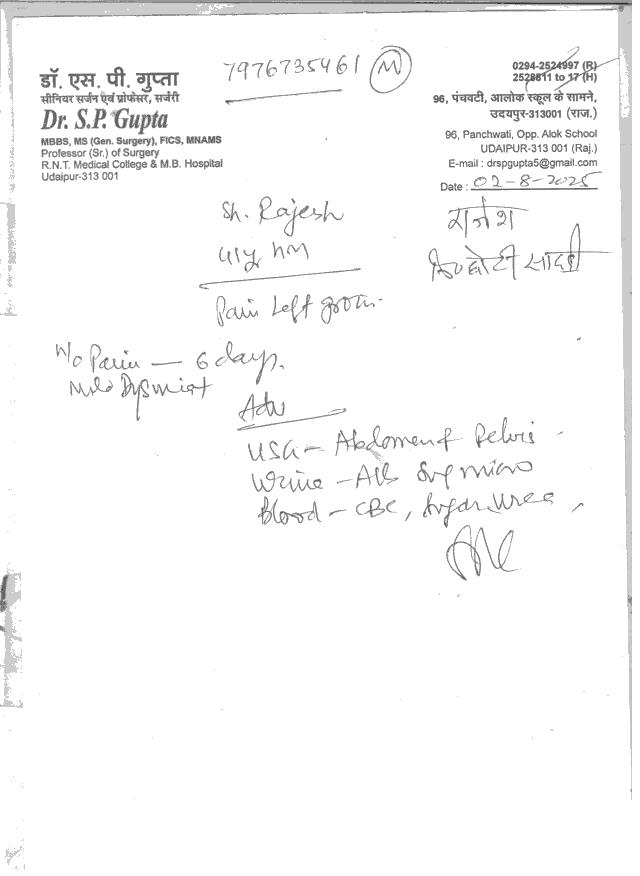 डॉ. एस. पी. गुप्ता
सीनियर सर्जन एवं प्रोफेसर, सर्जरी
Dr. S.P. Gupta
MBBS, MS (Gen. Surgery), FICS, MNAMS
Professor (Sr.) of Surgery
R.N.T. Medical College & M.B. Hospital
Udaipur-313 001
7976735461 M
0294-2524997 (R)
2528811 to 17 (H)
96, पंचवटी, आलोक स्कूल के सामने,
उदयपुर-313001 (राज.)
96, Panchwati, Opp. Alok School
UDAIPUR-313 001 (Raj.)
E-mail : drspgupta5@gmail.com
Date : 02-8-2025
Sh. Rajesh
राजेश
छोटी सादड़ी
Pain Left groin
H/o Pain — 6 days.
Mild
Adv
USG - Abdomen & Pelvis
Urine - Alb Sug micro
Blood - CBC, Sugar, Urea,